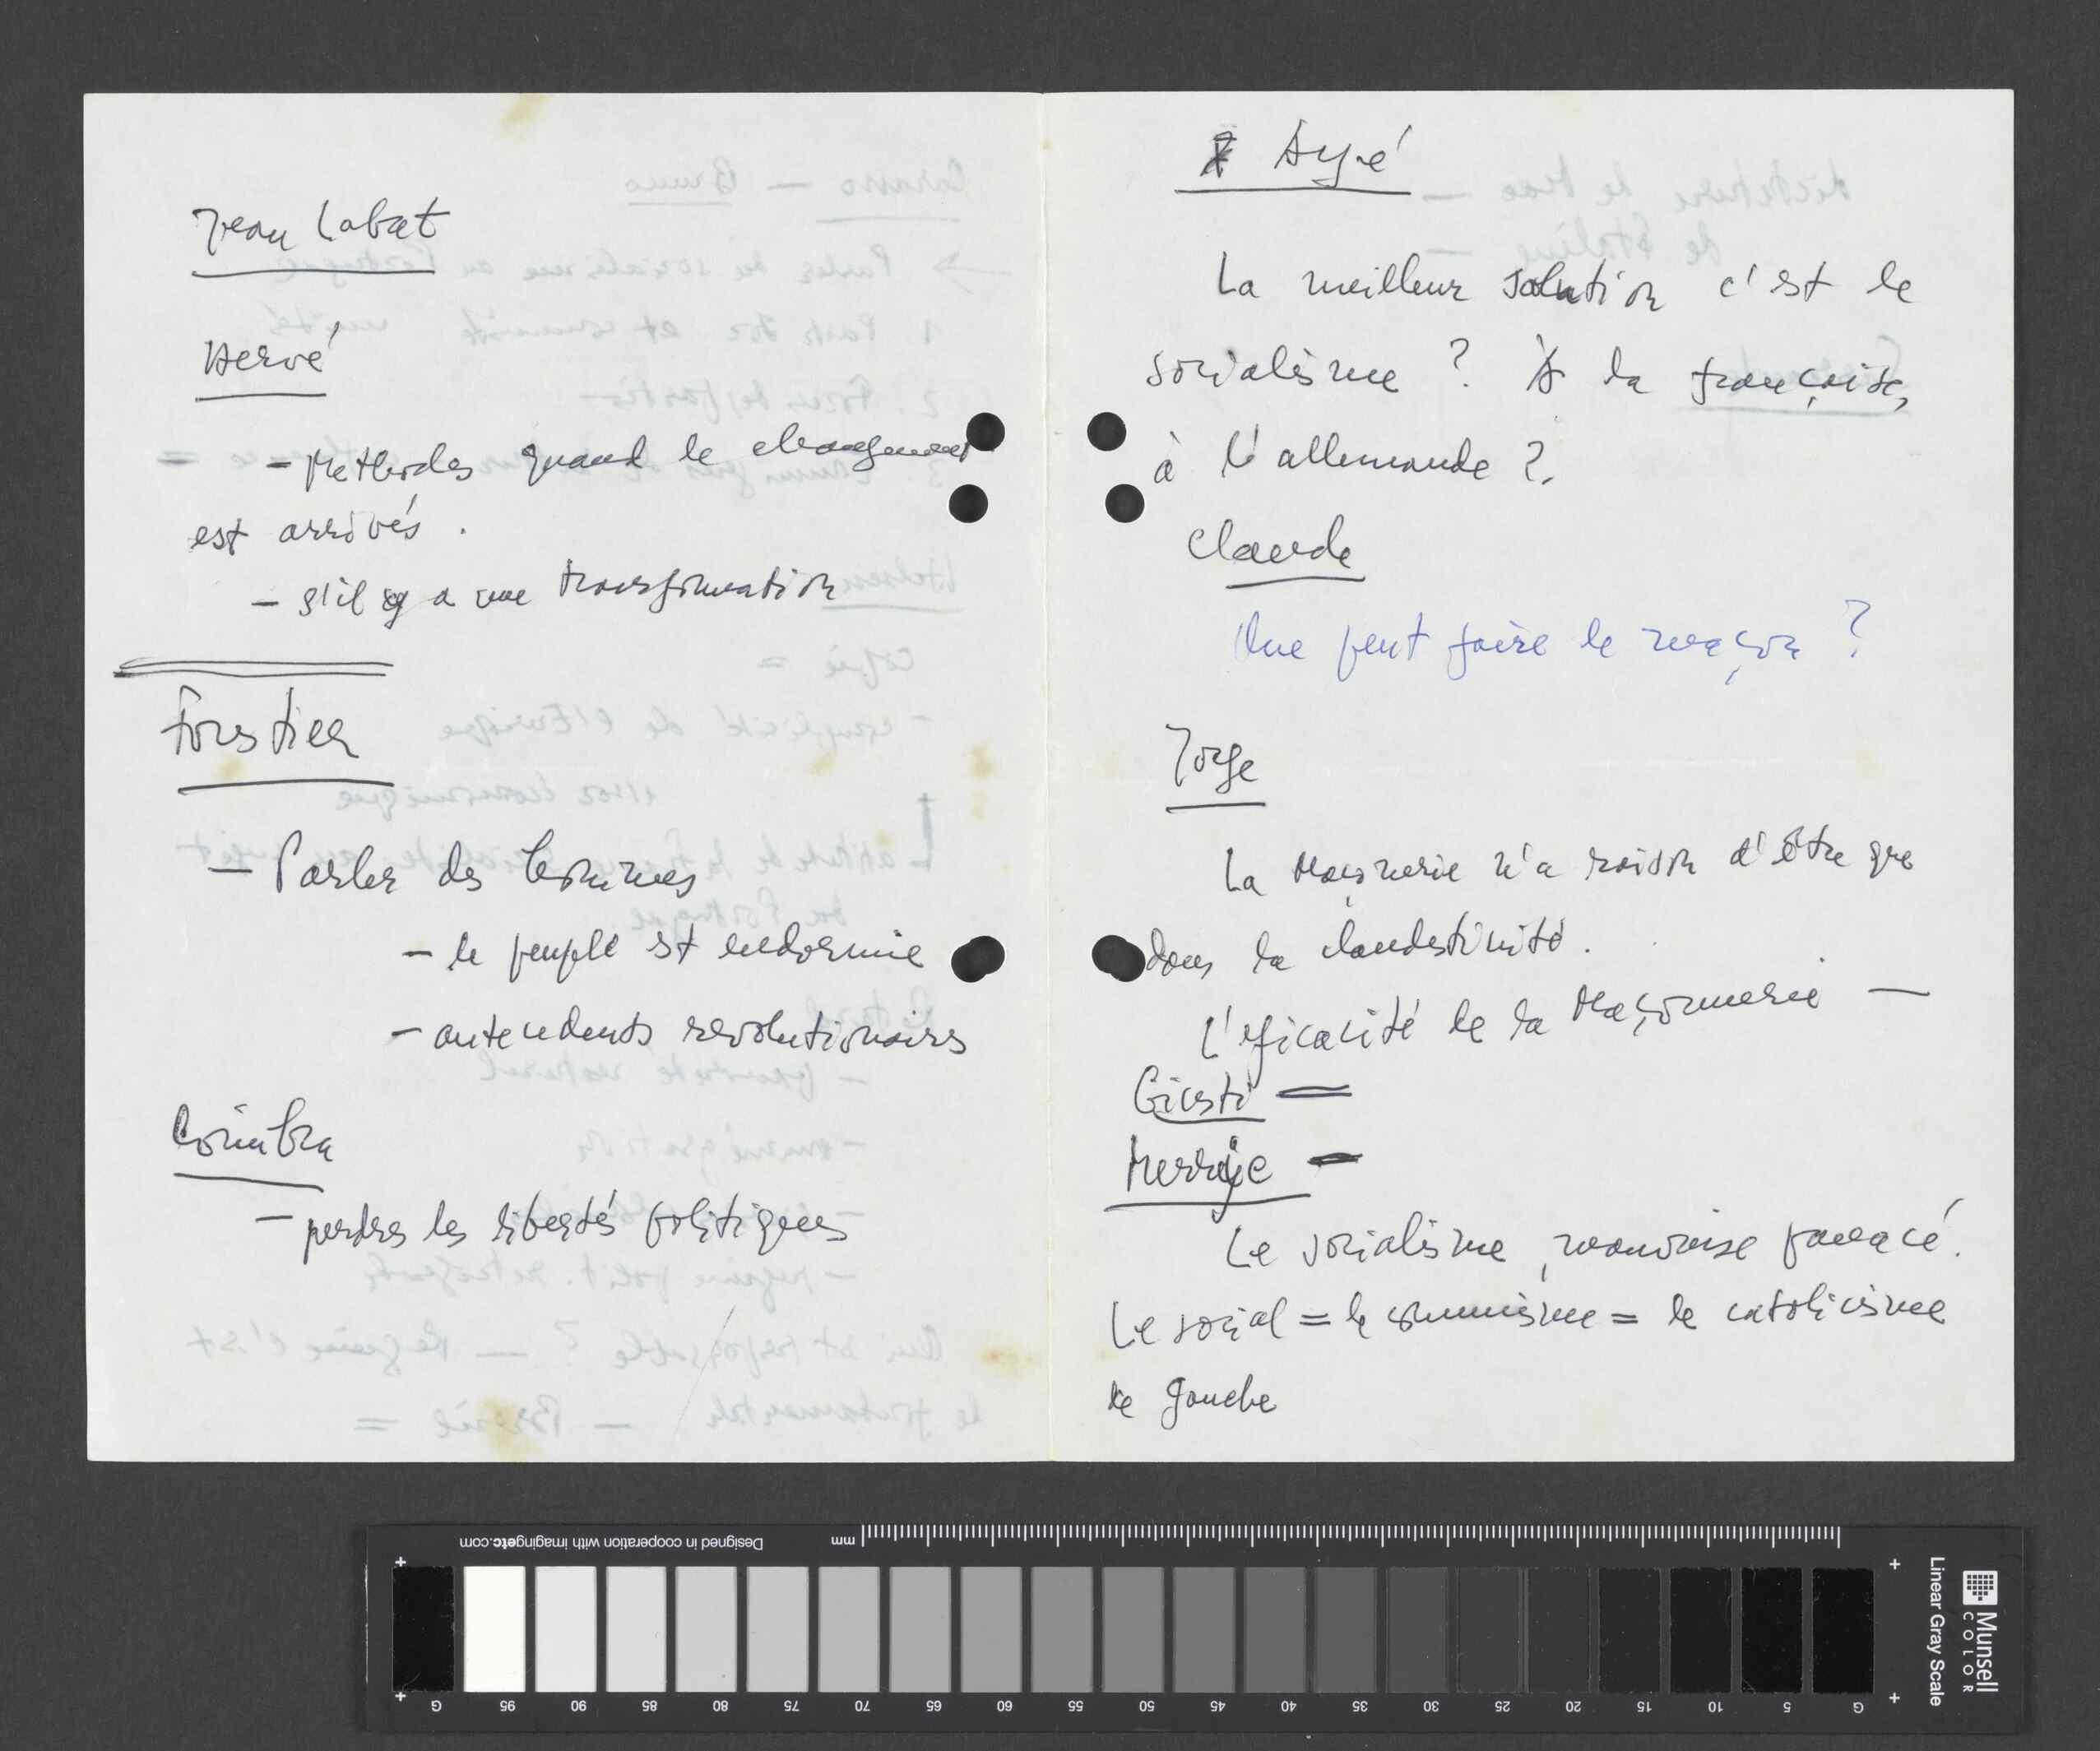 Jean Labat
Hervé
- Methodes quand le changement
est arrivés .
- s'il y a une transformation
Forstier
- Parler des hommes
- le peuple est endormie
- antecedents revolutionairs
Coimbra
- perdres les libertés politiques
Ayié
La meilleur solution c'est le
socialisme ? À la française,
à l'allemande ?.
Claude
Que peut faire le maçon ?
Jorge
La Maçonerie n'a raison d'être que
dans la clandestinité .
L'eficacité de la Maçonnerie —
Giusti =
—
Le socialisme, mauvaise
Le social = le communisme = le catolicisme
de gauche
Designed in cooperation with imagingetc.com
mm
G 95 90 85 80 75 70 65 60 55 50 45 40 35 30 25 20 15 10 5 G
Linear Gray Scale
Munsell
COLOR